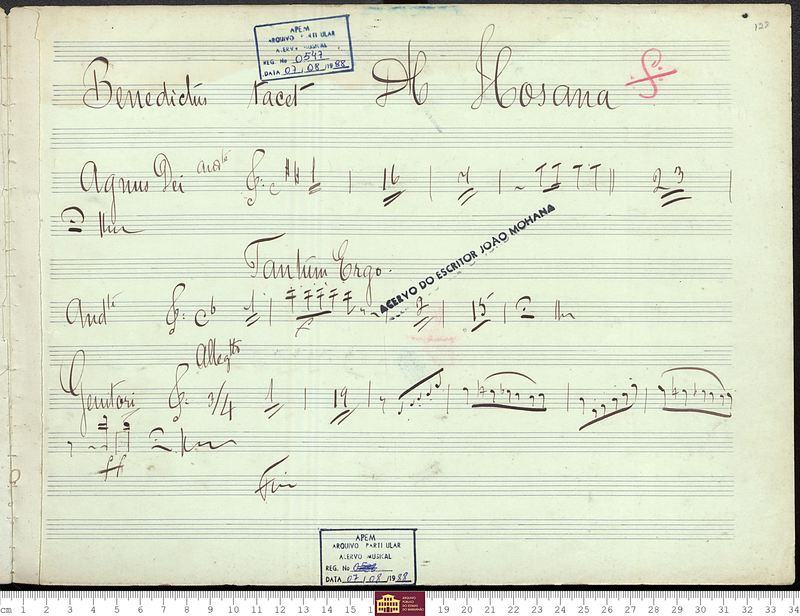 128
APEM
ARQUIVO PARTICULAR
ACERVO MUSICAL
REG. No 0547
DATA 07/08/1988
Benedictus tacet Hosana
Agnus Dei And.te C 1 16 7 23
Tantum Ergo.
ACERVO DO ESCRITOR JOÃO MOHANA
And.te C 1 2 15
Allegtto
Genitori 3/4 1 19
ff
Fin
APEM
ARQUIVO PARTICULAR
ACERVO MUSICAL
REG. No
DATA 07/08/1988
cm 1 2 3 4 5 6 7 8 9 10 11 12 13 14 15 19 20 21 22 23 24 25 26 27 28 29 30 31 32 33 34